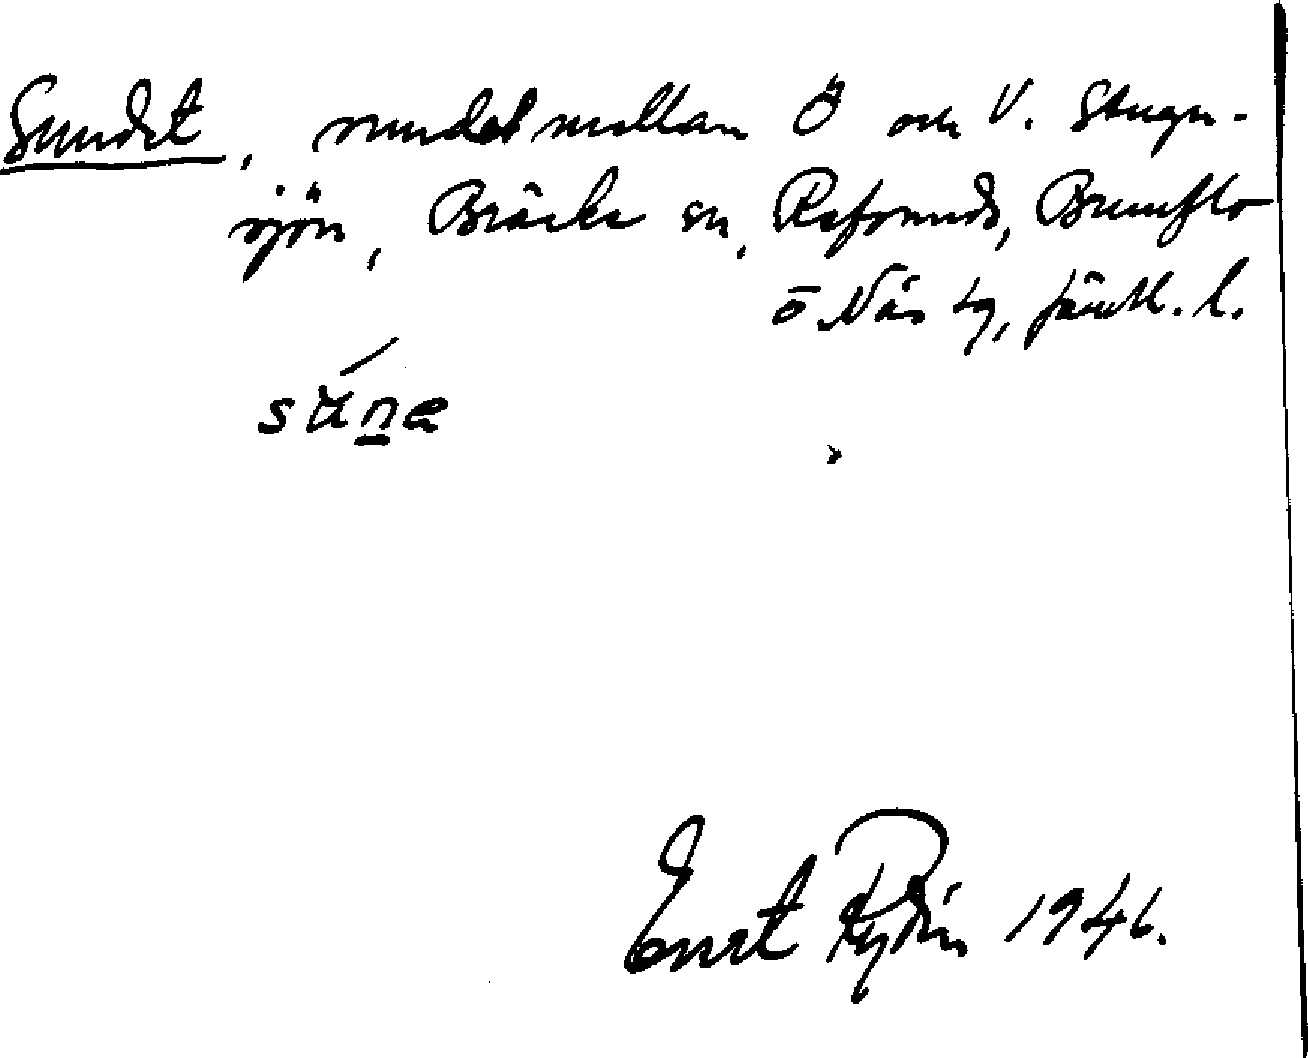 Sundet, sundet mellan Ö och V. Stugu-
sjön, Bräcke sn, Refsunds, Brunflo
o Näs tg, Jämtl. l.
súne
Ernst Rydén 1946.